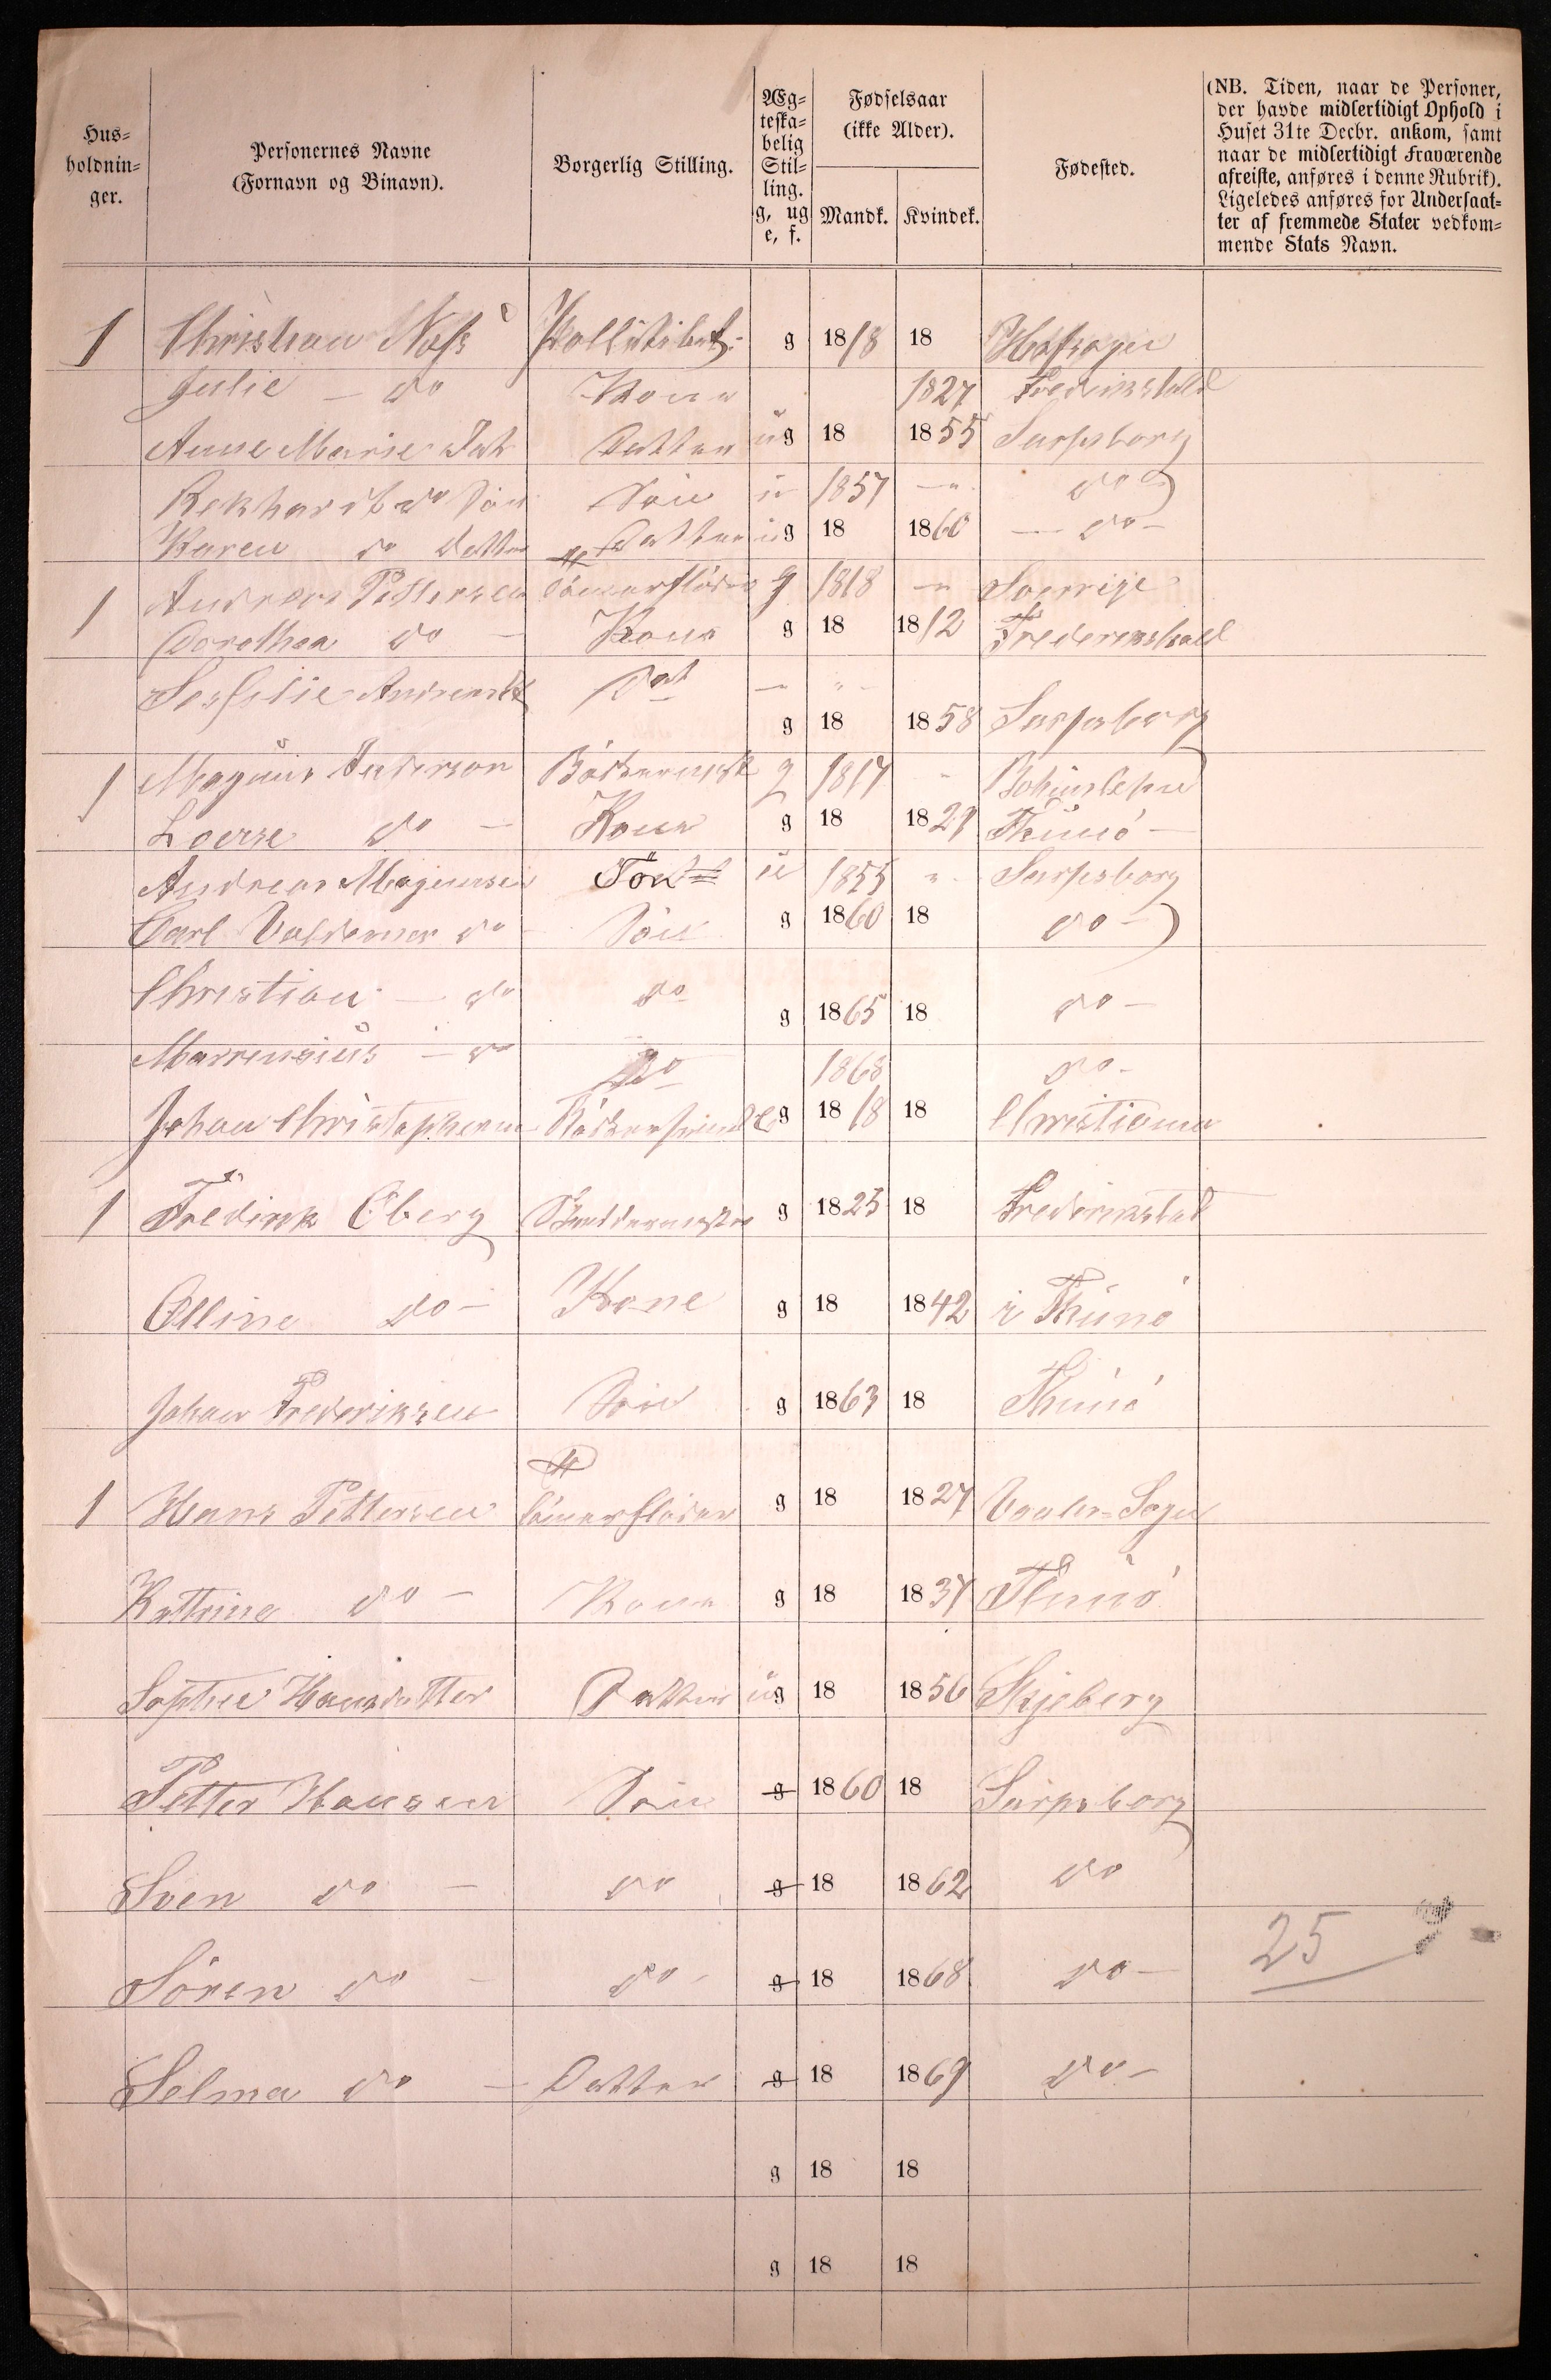 Hus-
holdnin-
ger.
Personernes Navne
(Fornavn og Binavn).
Borgerlig Stilling.
Æg-
teska-
belig
Stil-
ling.
g, ug
e, f.
Fødselsaar
(ikke Alder).
Mandk. Kvindek.
Fødested.
(NB. Tiden, naar de Personer,
der havde midlertidigt Ophold i
Huset 31te Decbr. ankom, samt
naar de midlertidigt Fraværende
afreiste, anføres i denne Rubrik).
Ligeledes anføres for Undersaat-
ter af fremmede Stater vedkom-
mende Stats Navn.
1 Christian g 1818 18
Julie do Kone 1827 Fredrikshald
Anne Marie Datter ug 18 1855 Sarpsborg
do Søn Søn u 1857 do
Karen do Datter Datter ug 18 1860 do
1 Andreas Pettersen g 1818 Sverrige
Dorothea do Kone g 18 1812 Frederikshald
Dat g 18 1858 Sarpsborg
1 Magnus g 1817 Bohuslehn
Lovise do Kone g 18 1829 Thunø
Andreas Magnusen Søn u 1855 Sarpsborg
Carl Valdemar do Søn g 1860 18 do
Christian do do g 1865 18 do
do do 1868 do
Johan Christophersen g 1818 18 Christiania
1 Fredirik Oberg g 1825 18 Frederikstad
Olline do Kone g 18 1842 i Thunø
Johan Frederiksen Søn g 1863 18 Thunø
1 Hans Pettersen g 18 1827 Vaaler-Sogn
Kattrine do Kone g 18 1837 Thunø
Sophie Hansdatter Datter ug 18 1856 Skjeberg
Petter Hansen Søn g 1860 18 Sarpsborg
Sven do do g 18 1862 do
Søren do do g 18 1868 do
Selma do Datter g 18 1869 do
25
g 18 18
g 18 18